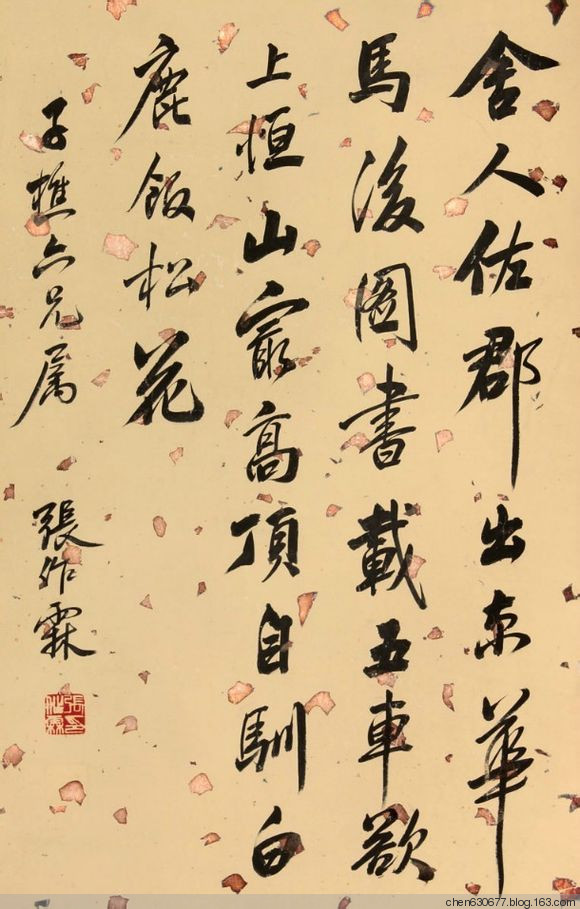 舍人佐郡出东華
馬後圖書載五車欲
上恒山最高頂自馴白
鹿飯松花
子樵六兄属
張作霖
張作霖
chen630677.blog.163.com